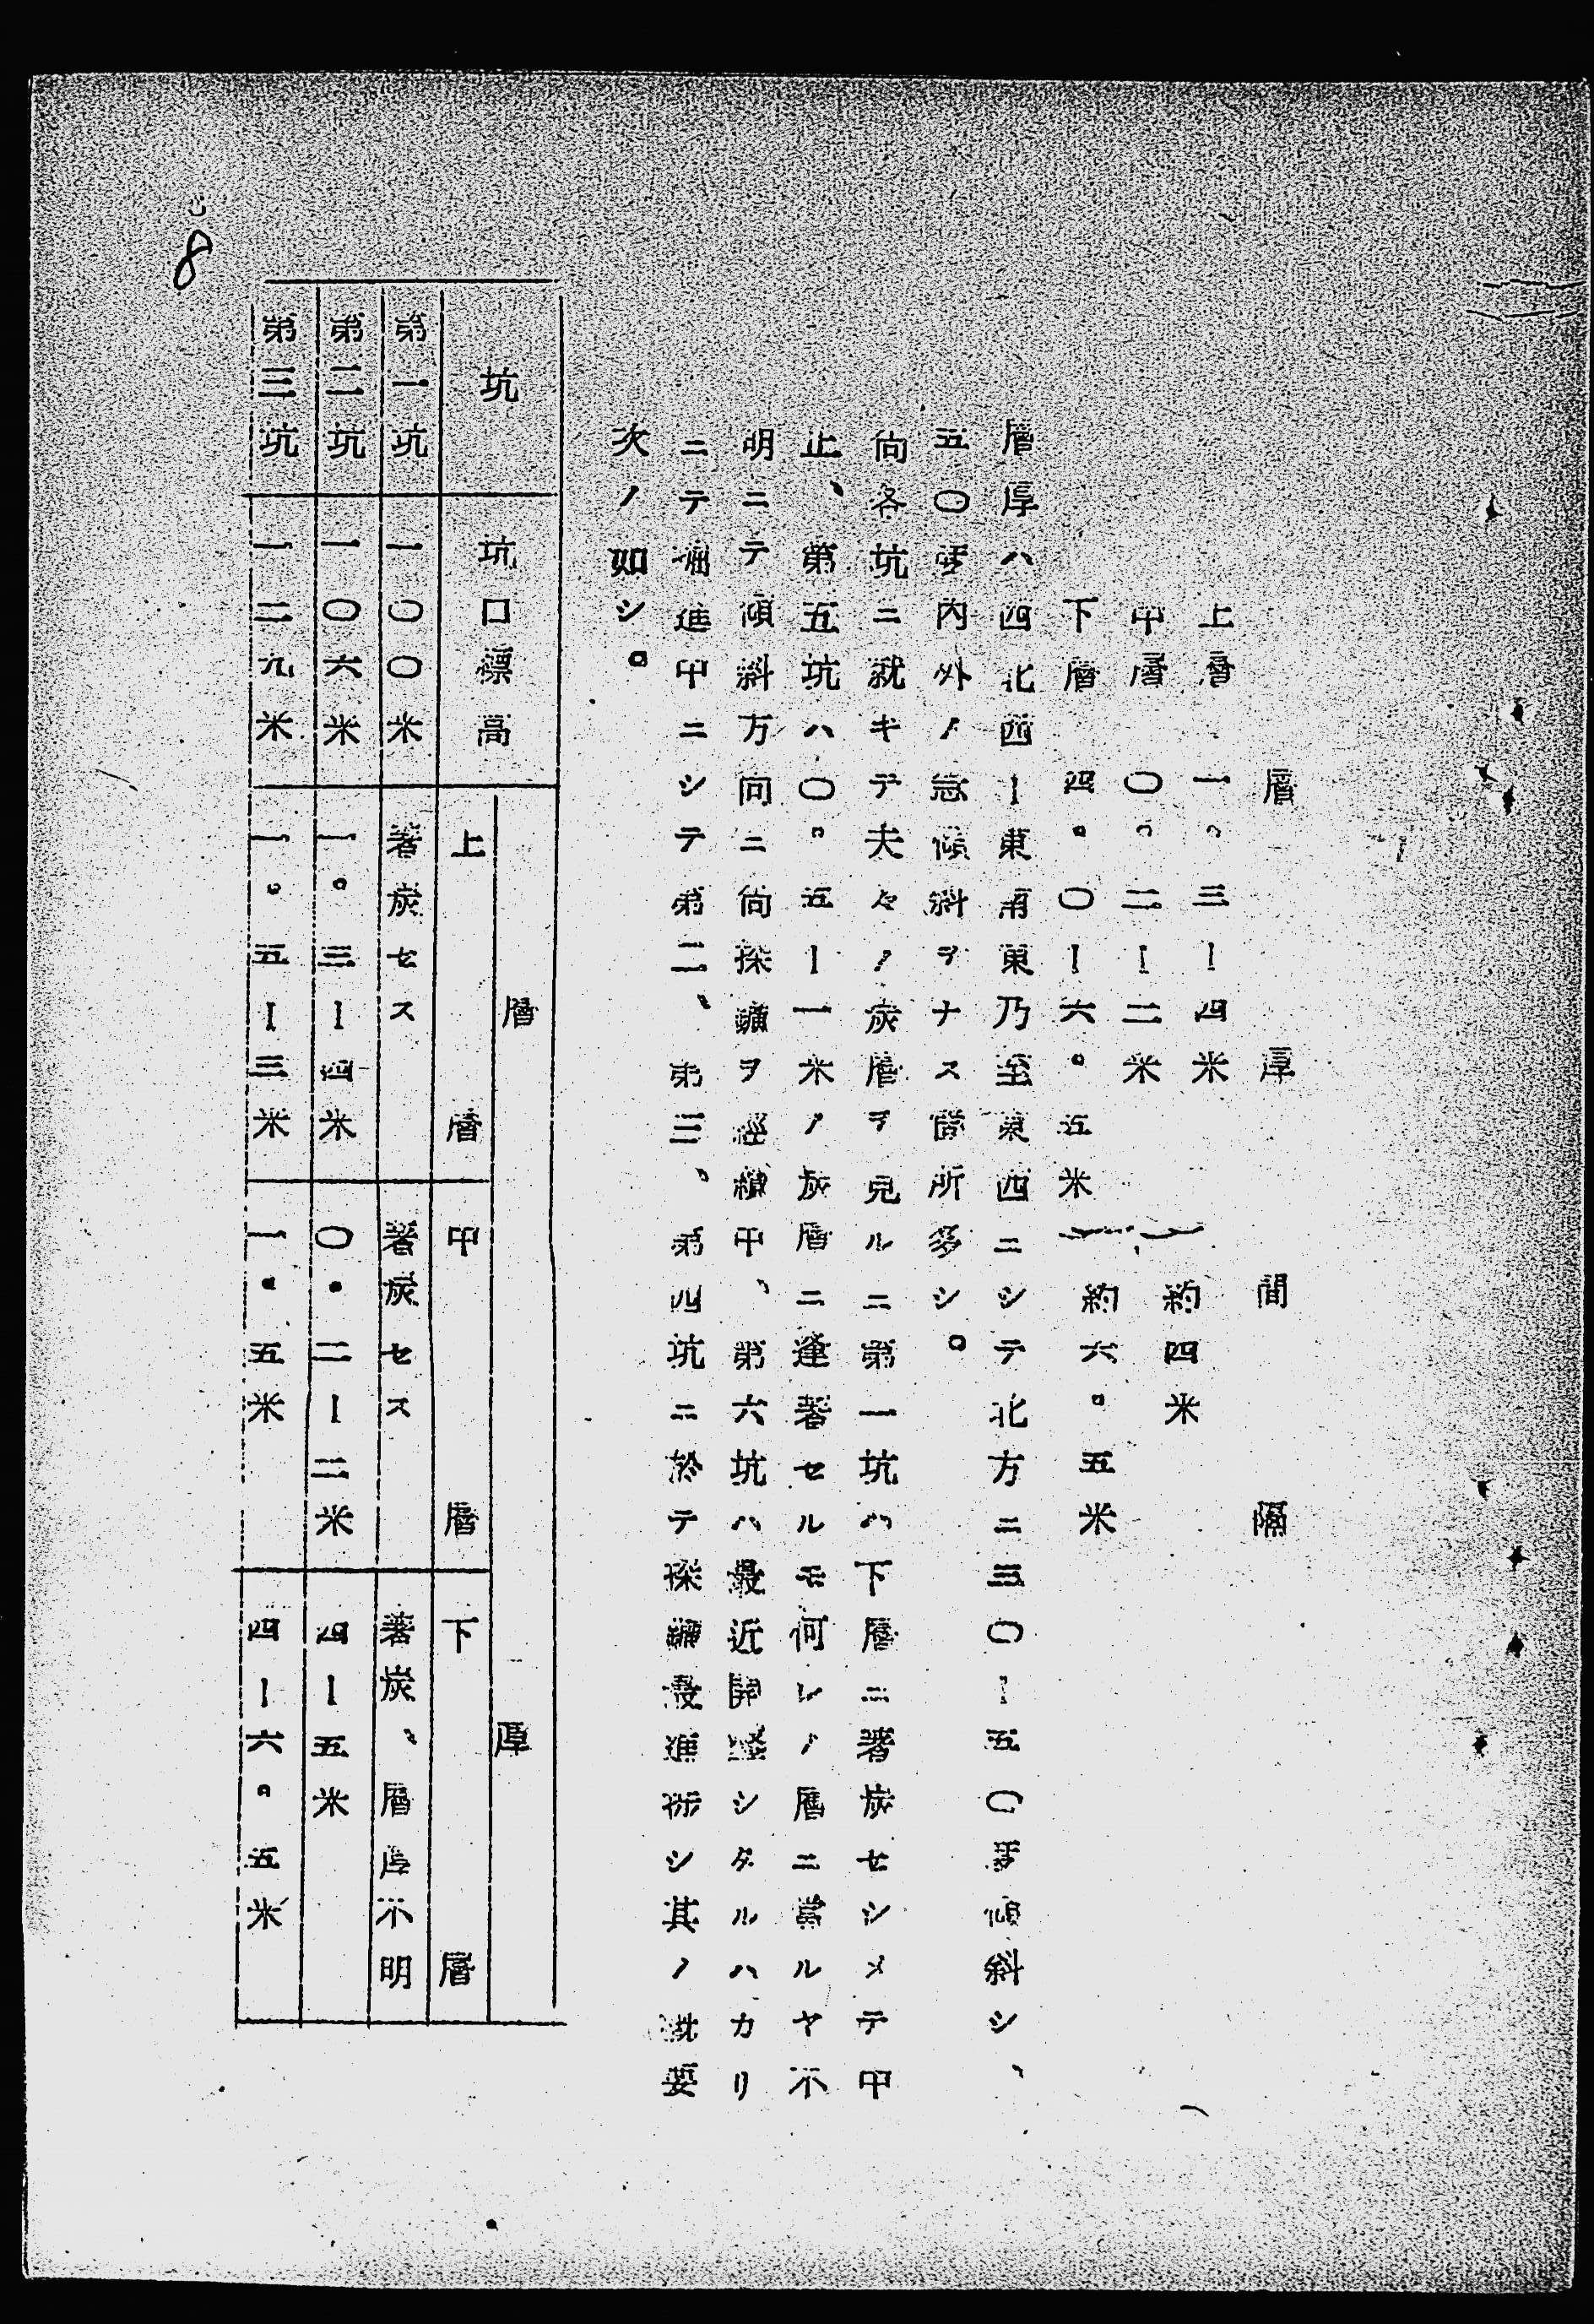 層　厚　間　隔
上層　一。三ー四米
約四米
中層　〇。二ー二米
約六。五米
下層　四。〇ー六。五米
層厚ハ四北西ー東南東乃至東西ニシテ北方ニ三〇ー五〇度傾斜シ、
五〇度内外ノ急傾斜ヲナス箇所多シ。
尚各坑ニ就キテ夫々ノ炭層ヲ見ルニ第一坑ハ下層ニ著炭セシメテ中
止、第五坑ハ〇。五ー一米ノ炭層ニ逢著セルモ何レノ層ニ當ルヤ不
明ニテ傾斜方向ニ尚探鑛ヲ經續中、第六坑ハ最近開坑シタルハカリ
ニテ掘進中ニシテ第二、第三、第四坑ニ於テ探鑛最進捗シ其ノ概要
次ノ如シ。
坑　坑口標高　層厚
上層　中層　下層
第一坑　一〇〇米　著炭セス　著炭セス　著炭、層厚不明
第二坑　一〇六米　一。三ー四米　〇。二ー二米　四ー五米
第三坑　一二九米　一。五ー三米　一。五米　四ー六。五米
8